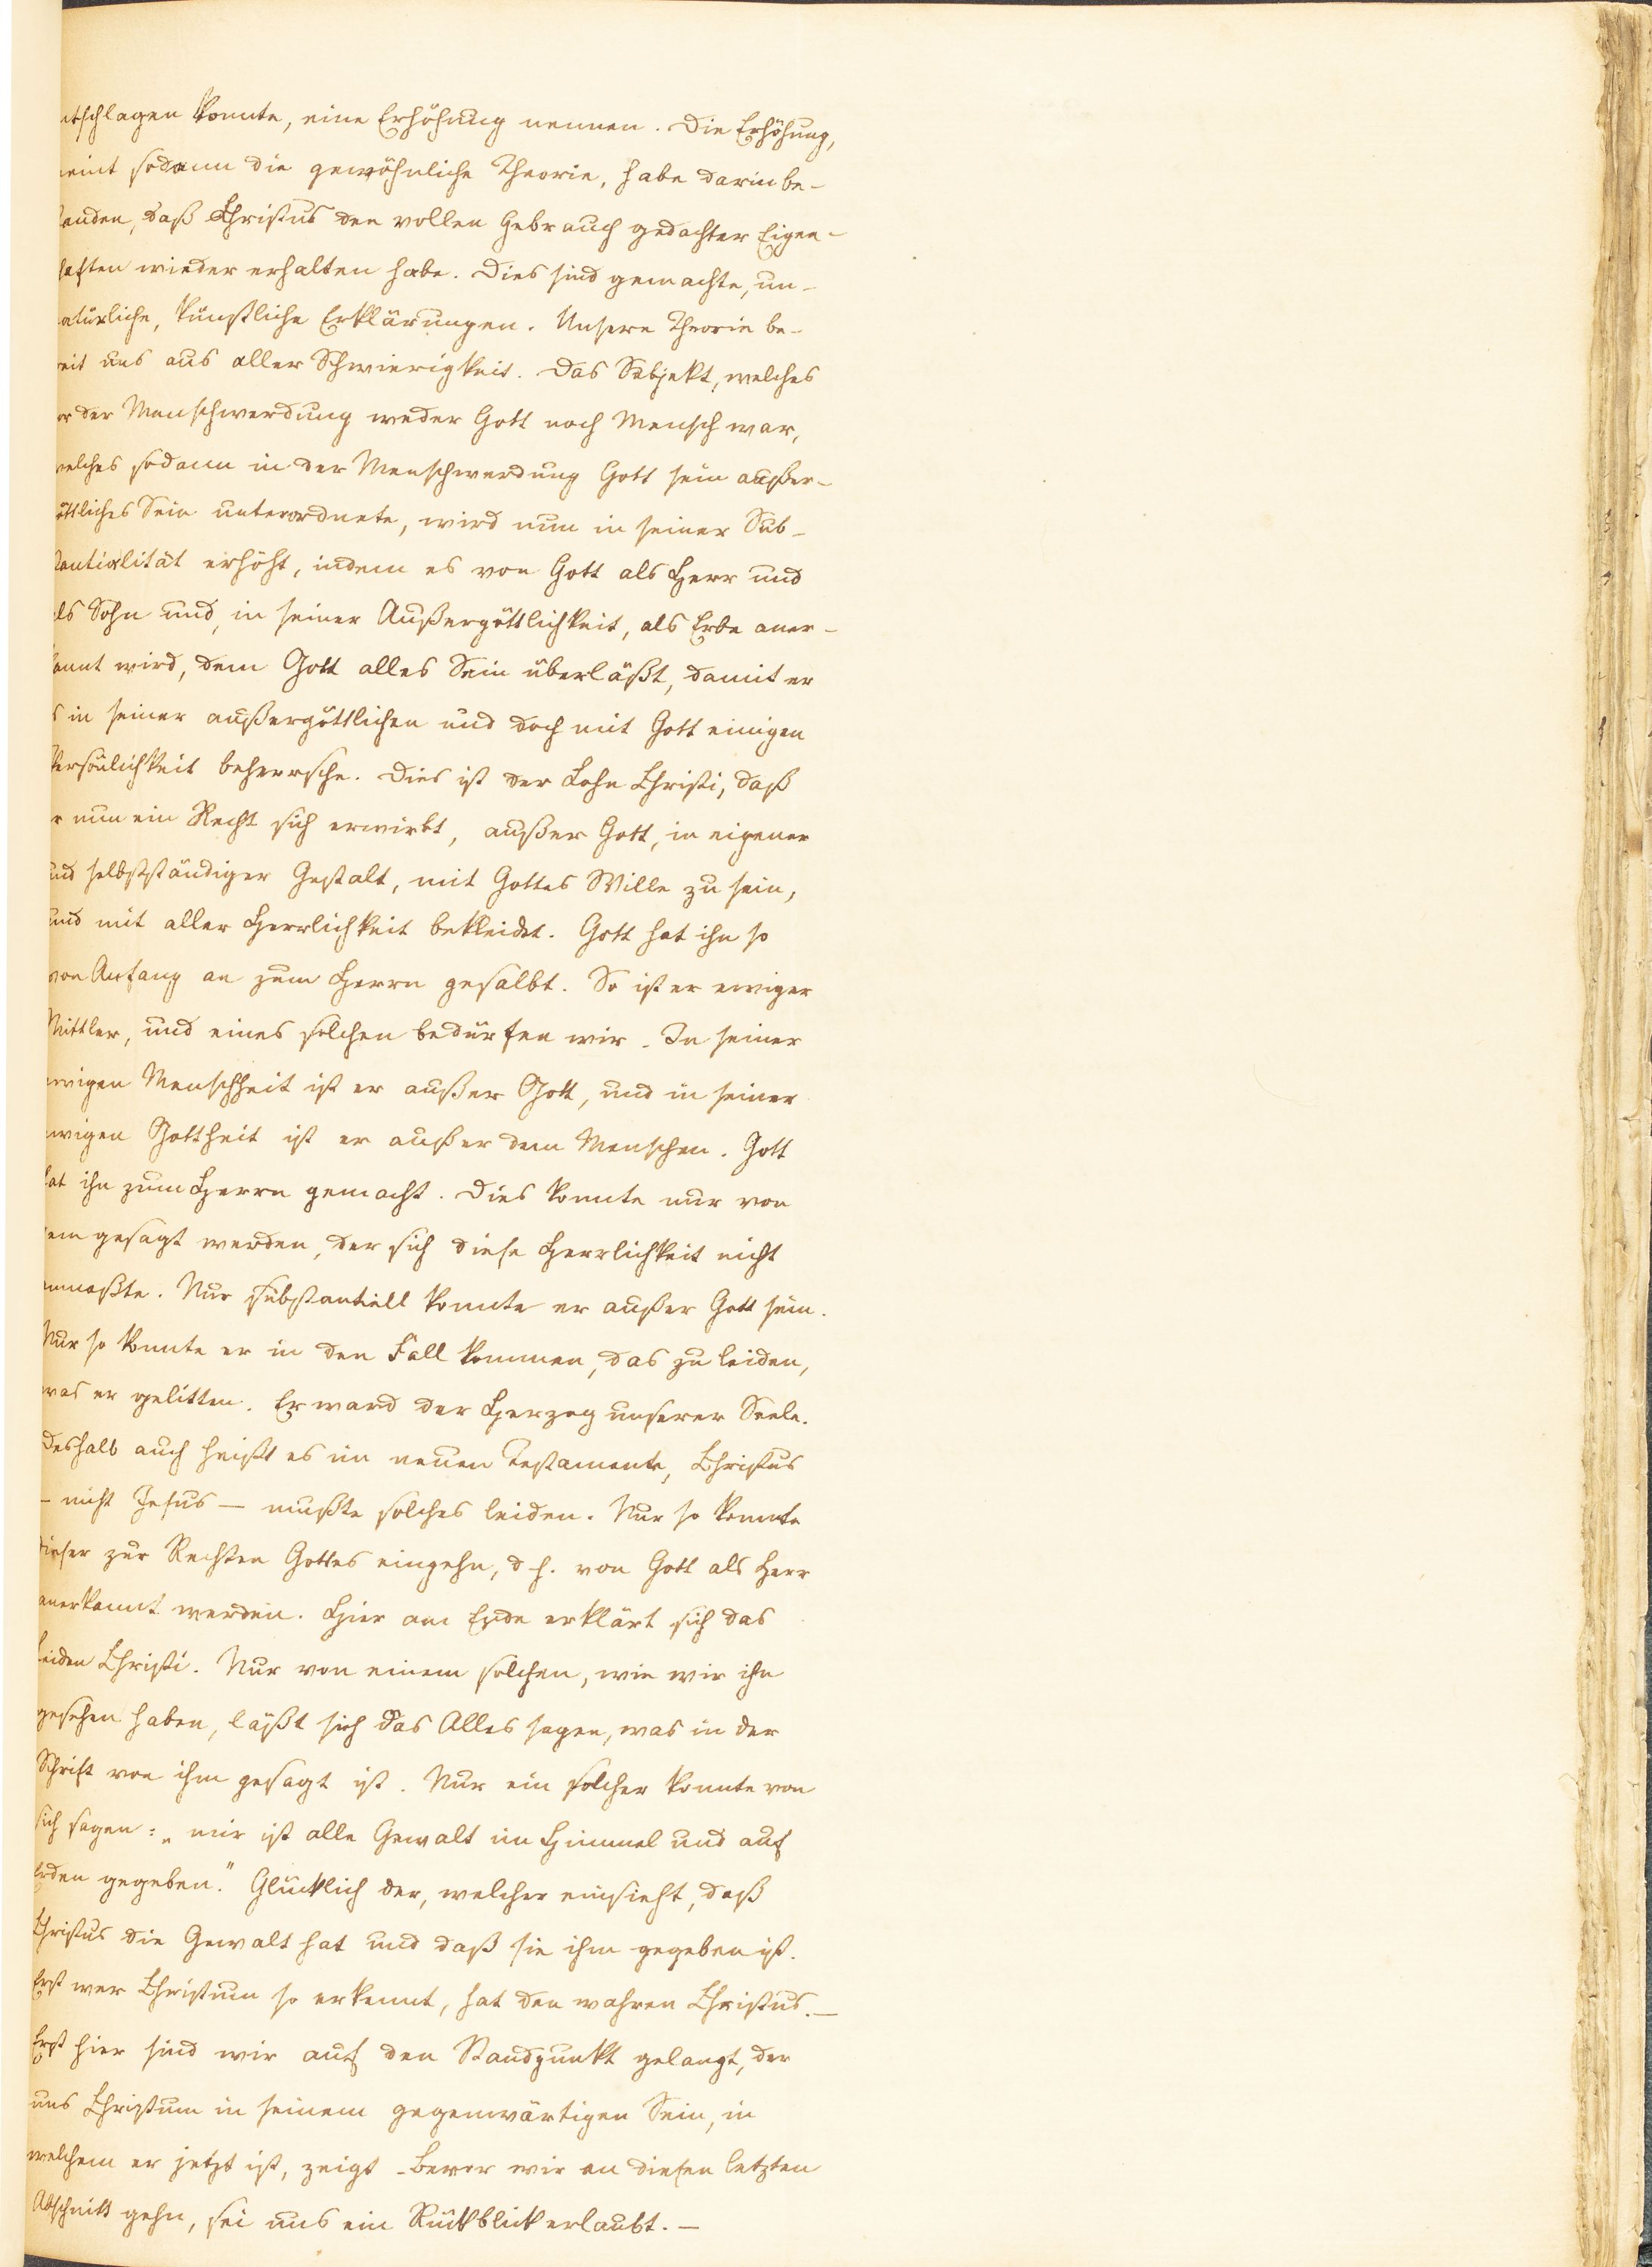 ntschlagen konnte, eine Erhöhung nennen. Die Erhöhung,
meint sodann die gewöhnliche Theorie, habe darin be-
standen, daß Christus den vollen Gebrauch gedachter Eigen-
schaften wieder erhalten habe. Dies sind gemachte, un-
natürliche, künstliche Erklärungen. Unsere Theorie be-
freit uns aus aller Schwierigkeit. Das Subjekt, welches
vor der Menschwerdung weder Gott noch Mensch war,
welches sodann in der Menschwerdung Gott sein außer-
göttliches Sein unterordnete, wird nun in seiner Sub-
stantialität erhöht, indem es von Gott als Herr und
als Sohn und, in seiner Außergöttlichkeit, als Erbe aner-
kannt wird, dem Gott alles Sein überläßt, damit er
es in seiner außergöttlichen und doch mit Gott einigen
Persönlichkeit beherrsche. Dies ist der Lohn Christi, daß
er nun ein Recht sich erwirbt, außer Gott, in eigener
und selbstständiger Gestalt, mit Gottes Wille zu sein,
und mit aller Herrlichkeit bekleidet. Gott hat ihn so
von Anfang an zum Herrn gesalbt. So ist er ewiger
Mittler, und eines solchen bedürfen wir. In seiner
ewigen Menschheit ist er außer Gott, und in seiner
ewigen Gottheit ist er außer dem Menschen. Gott
hat ihn zum Herrn gemacht. Dies konnte nur von
dem gesagt werden, der sich diese Herrlichkeit nicht
anmaßte. Nur substantiell konnte er außer Gott sein.
Nur so konnte er in den Fall kommen, das zu leiden,
was er gelitten. Er ward der Herzog unserer Seele.
Deshalb auch heißt es im neuen Testamente, Christus
– nicht Jesus – mußte solches leiden. Nur so konnte
dieser zur Rechten Gottes eingehn, d. h. von Gott als Herr
anerkannt werden. Hier am Ende erklärt sich das
Leiden Christi. Nur von einem solchen, wie wir ihn
gesehen haben, läßt sich das Alles sagen, was in der
Schrift von ihm gesagt ist. Nur ein solcher konnte von
sich sagen: „mir ist alle Gewalt im Himmel und auf
Erden gegeben." Glücklich der, welcher einsieht, daß
Christus die Gewalt hat und daß sie ihm gegeben ist.
Erst wer Christum so erkennt, hat den wahren Christus. –
Erst hier sind wir auf den Standpunkt gelangt, der
uns Christum in seinem gegenwärtigen Sein, in
welchem er jetzt ist, zeigt. Bevor wir an diesen letzten
Abschnitt gehn, sei uns ein Rückblick erlaubt. –